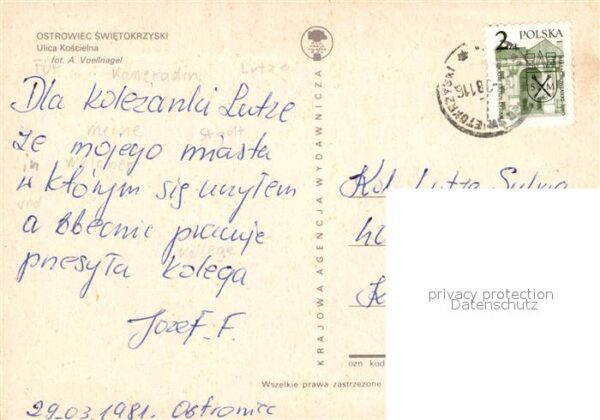 OSTROWIEC ŚWIĘTOKRZYSKI
Ulica Kościelna
fot. A. Voellnagel
Für Kameradin Lutze
Dla koleżanki Lutze
meine Stadt
ze mojego miasta
in welcher
w którym się uczyłem
und
a obecnie pracuje
Kollege
przesyła kolega
Jozef. F.
29.03.1981. Ostrowiec
KRAJOWA AGENCJA WYDAWNICZA
2 ZŁ
POLSKA
S M
Kol. Lutze Sylvia
privacy protection
Datenschutz
ozn kod
Wszelkie prawa zastrzeżone